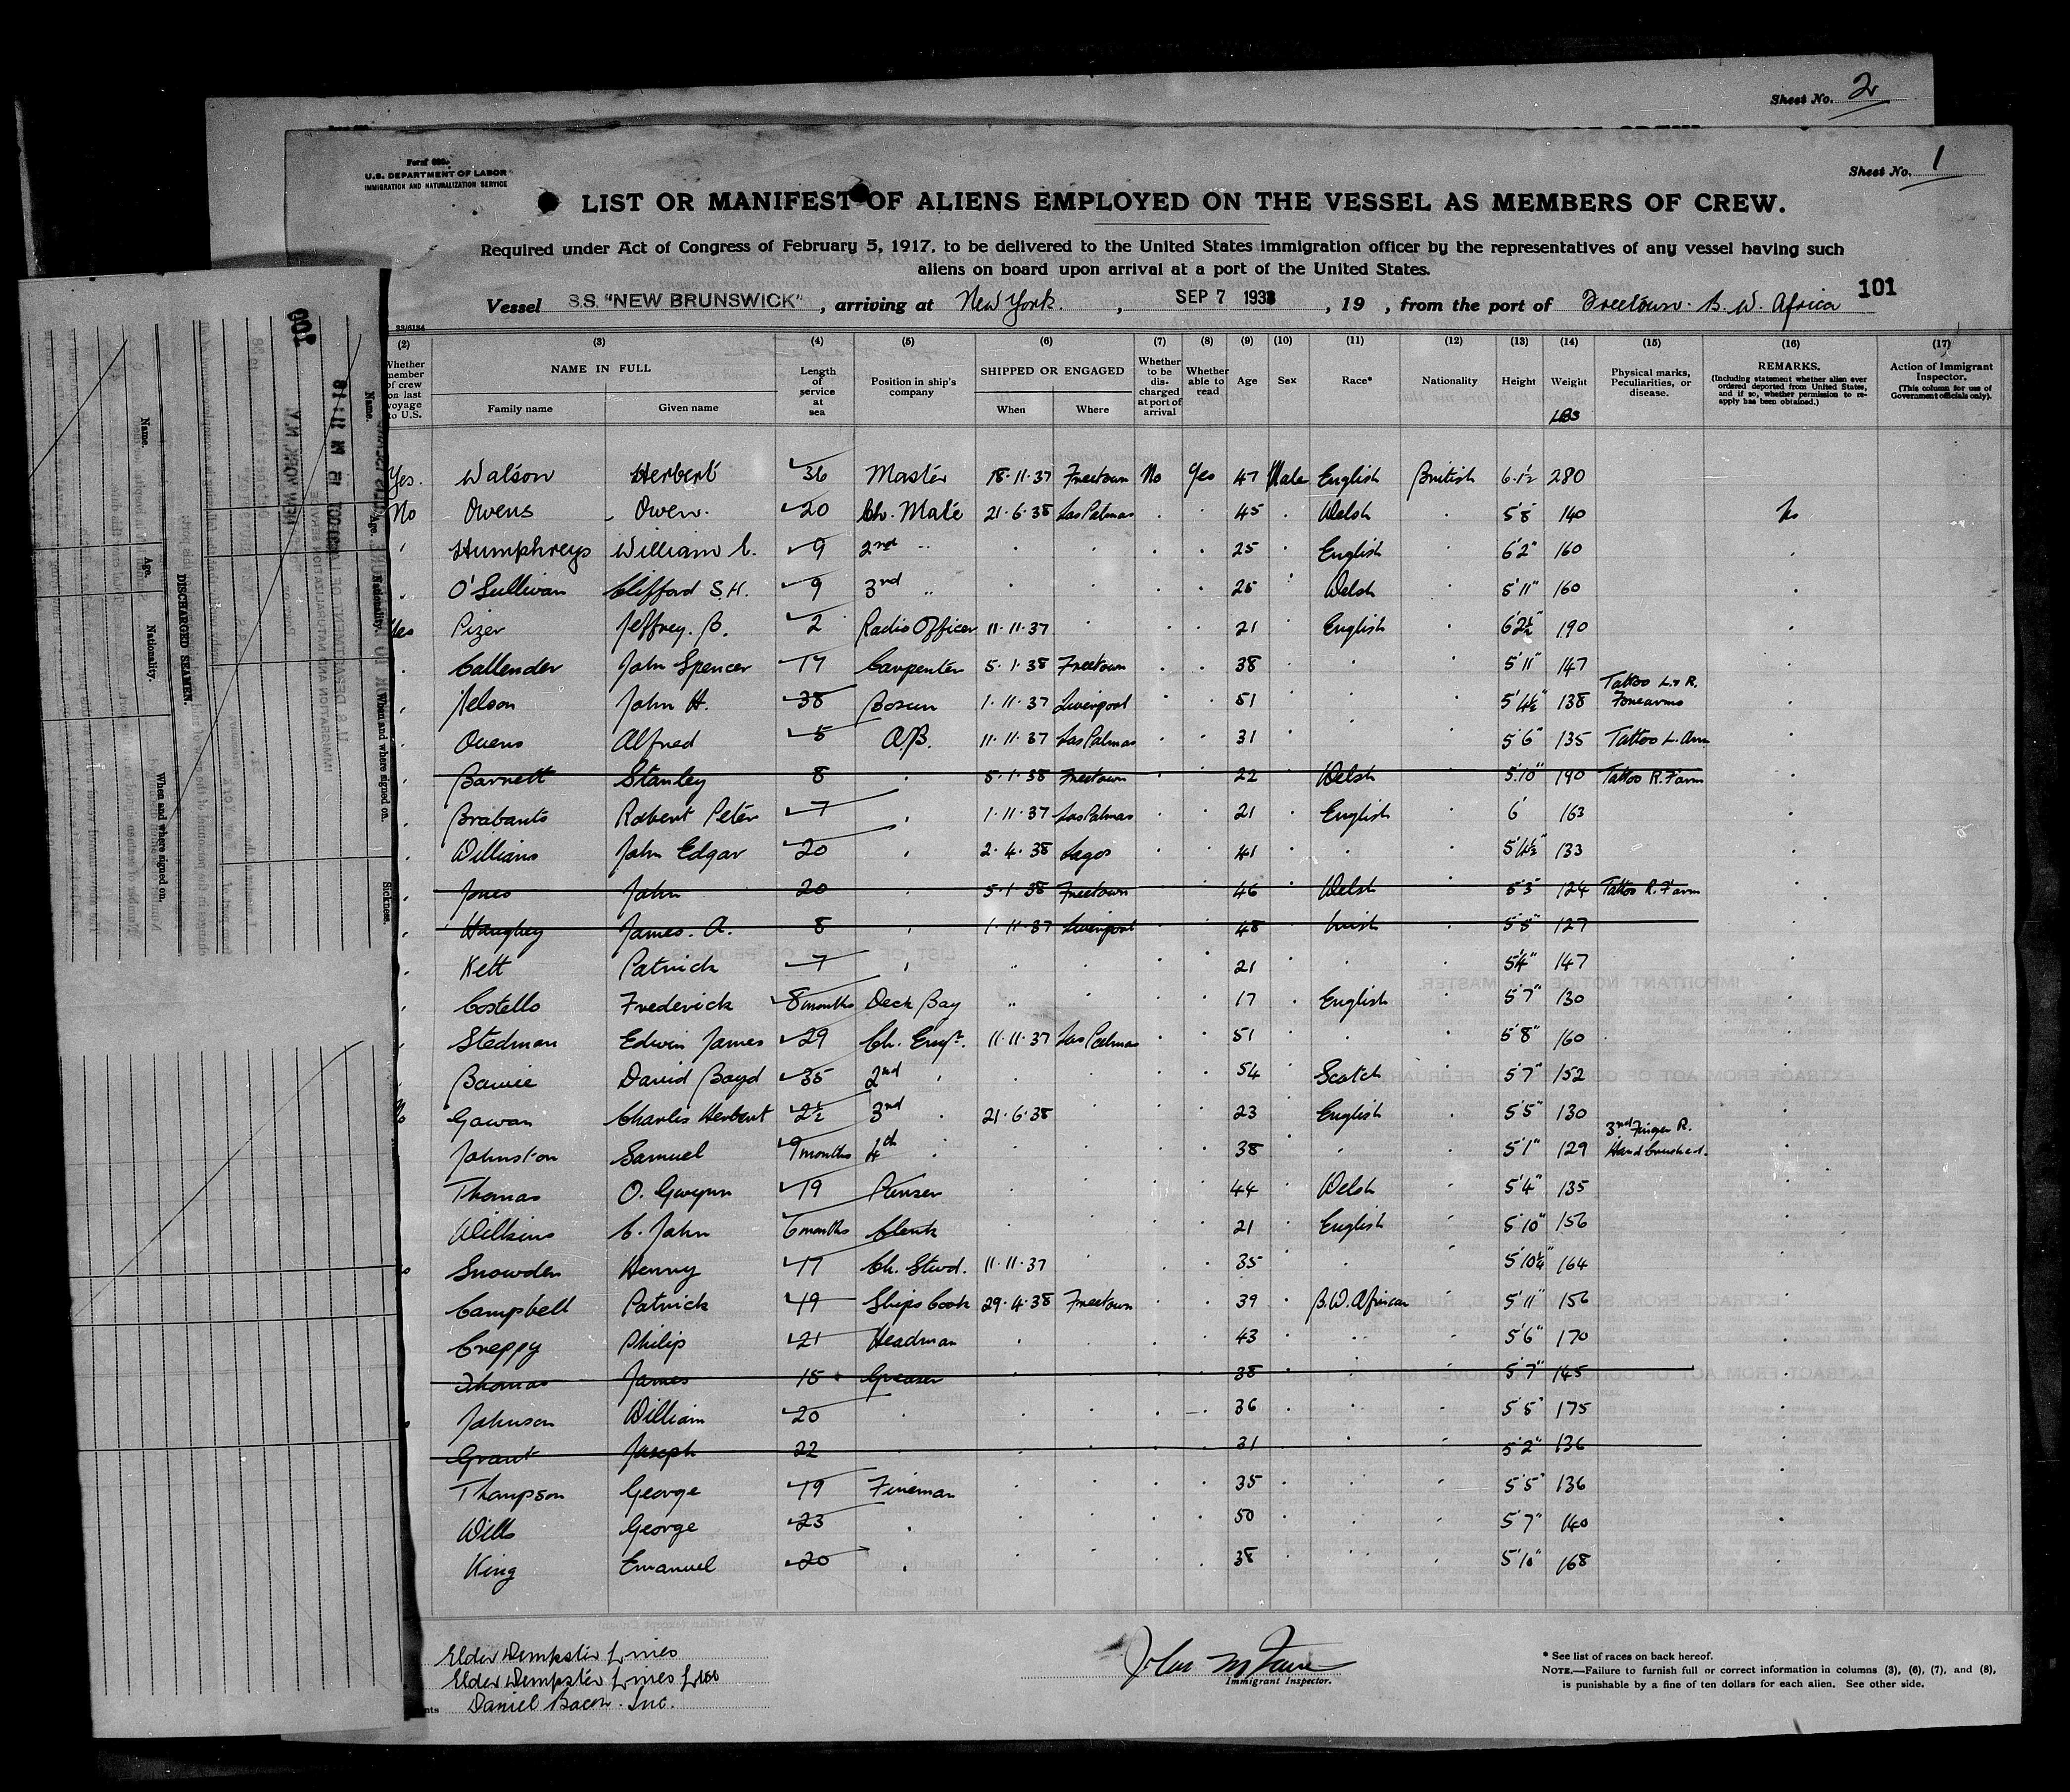 Sheet No. 2
Form 680
U.S. DEPARTMENT OF LABOR
IMMIGRATION AND NATURALIZATION SERVICE
Sheet No. 1
LIST OR MANIFEST OF ALIENS EMPLOYED ON THE VESSEL AS MEMBERS OF CREW.
Required under Act of Congress of February 5, 1917, to be delivered to the United States immigration officer by the representatives of any vessel having such
aliens on board upon arrival at a port of the United States.
Vessel S.S. "NEW BRUNSWICK", arriving at New York, SEP 7 1938, 19 , from the port of Freetown. B. W. Africa 101
(2) (3) (4) (5) (6) (7) (8) (9) (10) (11) (12) (13) (14) (15) (16) (17)
Whether member of crew on last voyage to U.S. NAME IN FULL Family name Given name Length of service at sea Position in ship's company SHIPPED OR ENGAGED When Where Whether to be discharged at port of arrival Whether able to read Age Sex Race* Nationality Height Weight LBS Physical marks, Peculiarities, or disease. REMARKS. (Including statement whether alien ever ordered deported from United States, and if so, whether permission to reapply has been obtained.) Action of Immigrant Inspector. (This column for use of Government officials only).
Yes. Watson Herbert 36 Master 18.11.37 Freetown No Yes 47 Male English British 6.1½ 280
No Owens Owen. 20 Ch. Mate 21.6.38 Las Palmas 45 Welsh 5'8 140 No
Humphreys William C. 9 2nd " 25 English 6'2" 160
O'Sullivan Clifford S.H. 9 3rd " 25 Welsh 5'11" 160
Yes Pizer Jeffrey. B. 2 Radio Officer 11.11.37 21 English 6'2½" 190
Callender John Spencer 17 Carpenter 5.1.38 Freetown 38 5'11" 147
Nelson John H. 38 Bosun 1.11.37 Liverpool 51 5'4½" 138 Tattoo L. & R. Forearms
Owens Alfred 5 A.B. 11.11.37 Las Palmas 31 5'6" 135 Tattoo L. Arm
Barnett Stanley 8 5.1.38 Freetown 22 Welsh 5'.10" 190 Tattoo R. F'arm
Brabants Robert Peter 7 1.11.37 Las Palmas 21 English 6' 163
Williams John Edgar 20 2.4.38 Lagos 41 5'4½" 133
Jones John 20 5.1.38 Freetown 46 Welsh 5'3" 124 Tattoo R. F'arm
Haughey James. A. 8 1.11.37 Liverpool 48 Irish 5'8" 127
Kett Patrick 7 " 21 5'4" 147
Costello Frederick 8 months Deck Boy " 17 English 5'7" 130
Stedman Edwin James 29 Ch. Engr. 11.11.37 Las Palmas 51 5'8" 160
David Boyd 35 2nd 54 Scotch 5'7" 152
No Gawan Charles Herbert 2½ 3rd 21.6.38 23 English 5'5" 130
Johnston Samuel 9 months 4th 38 5'1" 129 3rd Finger R. Hand Crushed.
Thomas O. Gwynn 19 Purser 44 Welsh 5'4" 135
Wilkins C. John 6 months Clerk 21 English 5'10" 156
Snowden Henny 17 Ch. Stwd. 11.11.37 35 5'10¼" 164
Campbell Patrick 19 Ships Cook 29.4.38 Freetown 39 B.W. African 5'11" 156
Creppy Philip 21 Headman 43 5'6" 170
Thomas James 15 Greaser 38 5'7" 145
Johnson William 20 36 5'5" 175
Grant Joseph 22 31 5'2" 136
Thompson George 19 Fireman 35 5'5" 136
Wills George 23 50 5'7" 140
King Emanuel 20 38 168
Elder Dempster Lines
Elder Dempster Lines Ltd
Daniel Bacon. Inc.
Immigrant Inspector.
* See list of races on back hereof.
NOTE.—Failure to furnish full or correct information in columns (3), (6), (7), and (8),
is punishable by a fine of ten dollars for each alien. See other side.
100
DISCHARGED SEAMEN.
Name. Age. Nationality. When and where signed on.
Name. Age. Nationality. When and where signed on. Sickness.